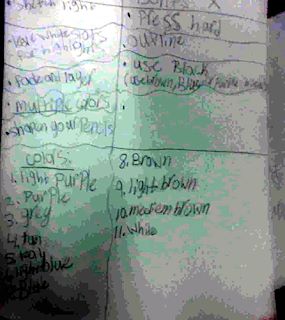 sketch light
Leave white spots
for highlights
• Fade and layer
• multiple colors
• sharpen your Pencils
Don'ts X
• Press hard
• outline
• use Black
(use brown, Blue,
colors:
1. light Purple
2. Purple
3. grey
4. tan
5.
6. light blue
8. Brown
9. light brown
10. medem brown
11. While